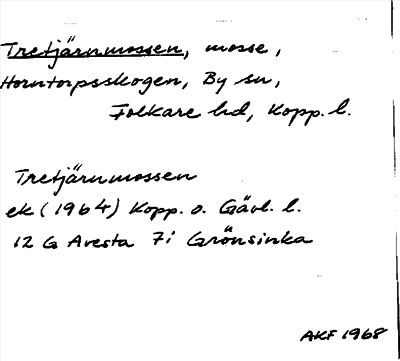 Tretjärnmossen, mosse,
Horntorpsskogen, By sn,
Folkare hd, Kopp. l.
Tretjärnmossen
ek (1964) Kopp. o. Gävl. l.
12 G Avesta 7i Grönsinka
AKF 1968